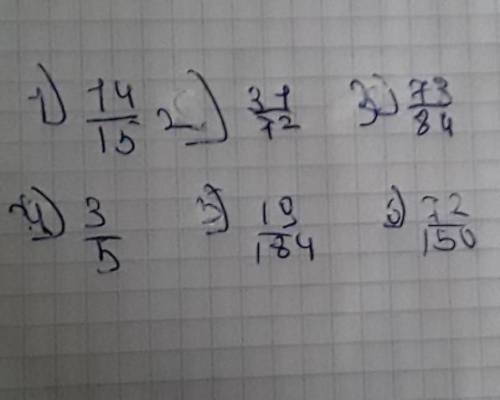 1) 14/15 2) 31/72 3) 73/84
4) 3/5 5) 19/184 6) 72/150